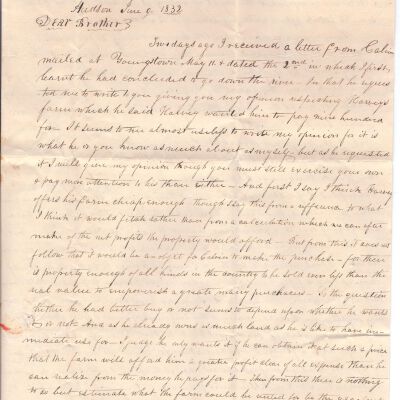 Hudson June 9. 1832
Dear Brother}
Two days ago I received a letter from Calvin
mailed at Youngstown May 11 & dated the 2nd in which I first
learnt he had concluded to go down the river - In that he reques
ted me to write to you giving you my opinion respecting Harveys
farm which he said Harvey wanted him to pay nine hundred
for. It seems to me almost useless to write my opinion for it is
what he or you know as much about as myself - but as he requested
it I will give my opinion though you must still exercise your own
& pay more attention to his than either - And first I say I think Harvey
offers his farm cheap enough though I say this from a reference to what
I think it would fetch rather than from a calculation which we can after
make of the net profits the property would afford - But from this it does not
follow that it would be an object for Calvin to make the purchase - for there
is property enough of all kinds in the country to be sold even less than the
real value to impoverish a great many purchasers - So the question
hether he had better buy or not seems to depend upon whether he wants
or not. And as he already owns as much land as he is like to have im-
mediate use for - I judge he may want it if he can obtain it at such a price
that the farm will afford him a greater profit clear of all expends than he
can realize from the money he pays for it - Then from this there is nothing
to do but estimate what the farm could be rented for